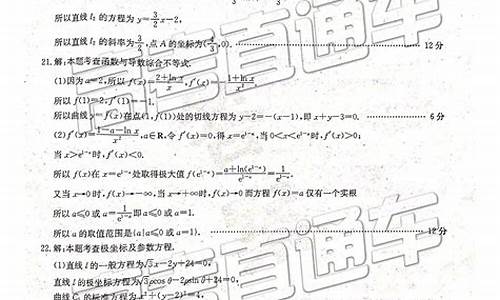 所以直线 l₂ 的方程为 y=3/2x-2,
所以直线 l₂ 的斜率为 3/2,点 A 的坐标为(-4/3,0). 12 分
21.解:本题考查函数与导数综合不等式.
(1)因为 a=2,所以 f(x)=(2+ln x)/x,f′(x)=-(1+ln x)/x²
所以 f(1)=2,f′(1)=-1.
所以曲线 y=f(x)在点(1,f(1))处的切线方程为 y-2=-(x-1),即 x+y-3=0. 6 分
(2)f′(x)=(1-a-ln x)/x²,a∈R,令 f′(x)=0,得 x=e¹⁻ᵃ,当 0<x<e¹⁻ᵃ时,f′(x)>0;
当 x>e¹⁻ᵃ时,f′(x)<0.
所以 f(x)在 x=e¹⁻ᵃ处取得极大值 f(e¹⁻ᵃ)=(a+ln(e¹⁻ᵃ))/e¹⁻ᵃ=1/e¹⁻ᵃ.
又当 x→0时,f(x)→-∞,当 x→+∞时,f(x)→0 而方程 f(x)=a 仅有一个实根
所以 a≤0 或 a=1/e¹⁻ᵃ即 a≤0 或 a=1.
所以 a 的取值范围是{a|a≤0 或 a=1}. 12 分
22.解:本题考查极坐标及参数方程.
(1)直线 l 的一般方程为√3x-2y+24=0,
直线 l 的极坐标方程为√3ρcos θ-2ρsin θ+24=0,
曲线 C₁ 的标准方程为 x²+(y-2)²=4,
高考直通车
高考直通车